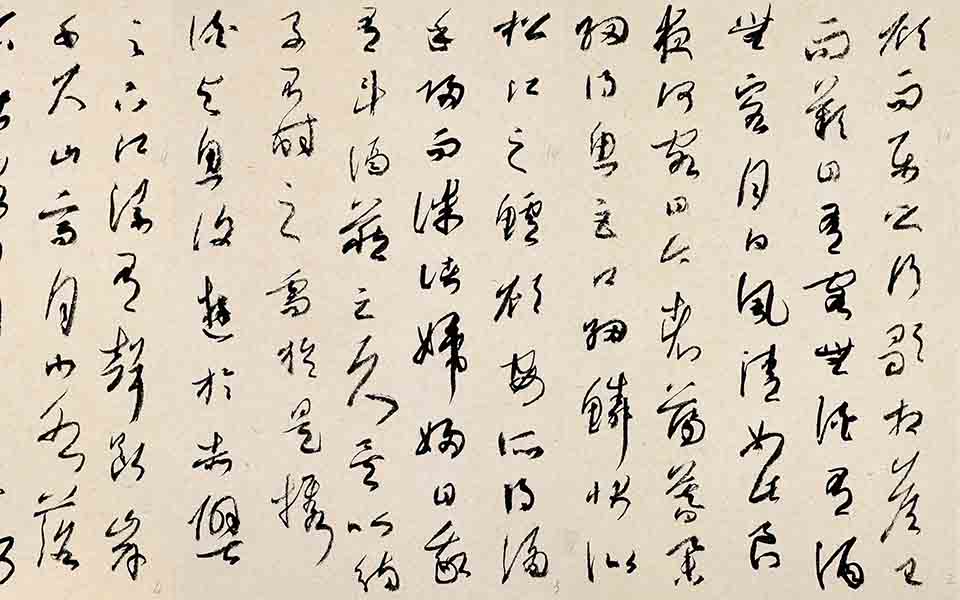 顧而樂之行歌相答已
而歎曰有客無酒有酒
無肴月白風清如此良
夜何客曰今者薄暮舉
網得魚巨口細鱗狀似
松江之鱸顧安所得酒
乎歸而謀諸婦婦曰我
有斗酒藏之久矣以待
子不時之需於是攜
酒與魚復遊於赤壁
之下江流有聲斷岸
千尺山高月小水落